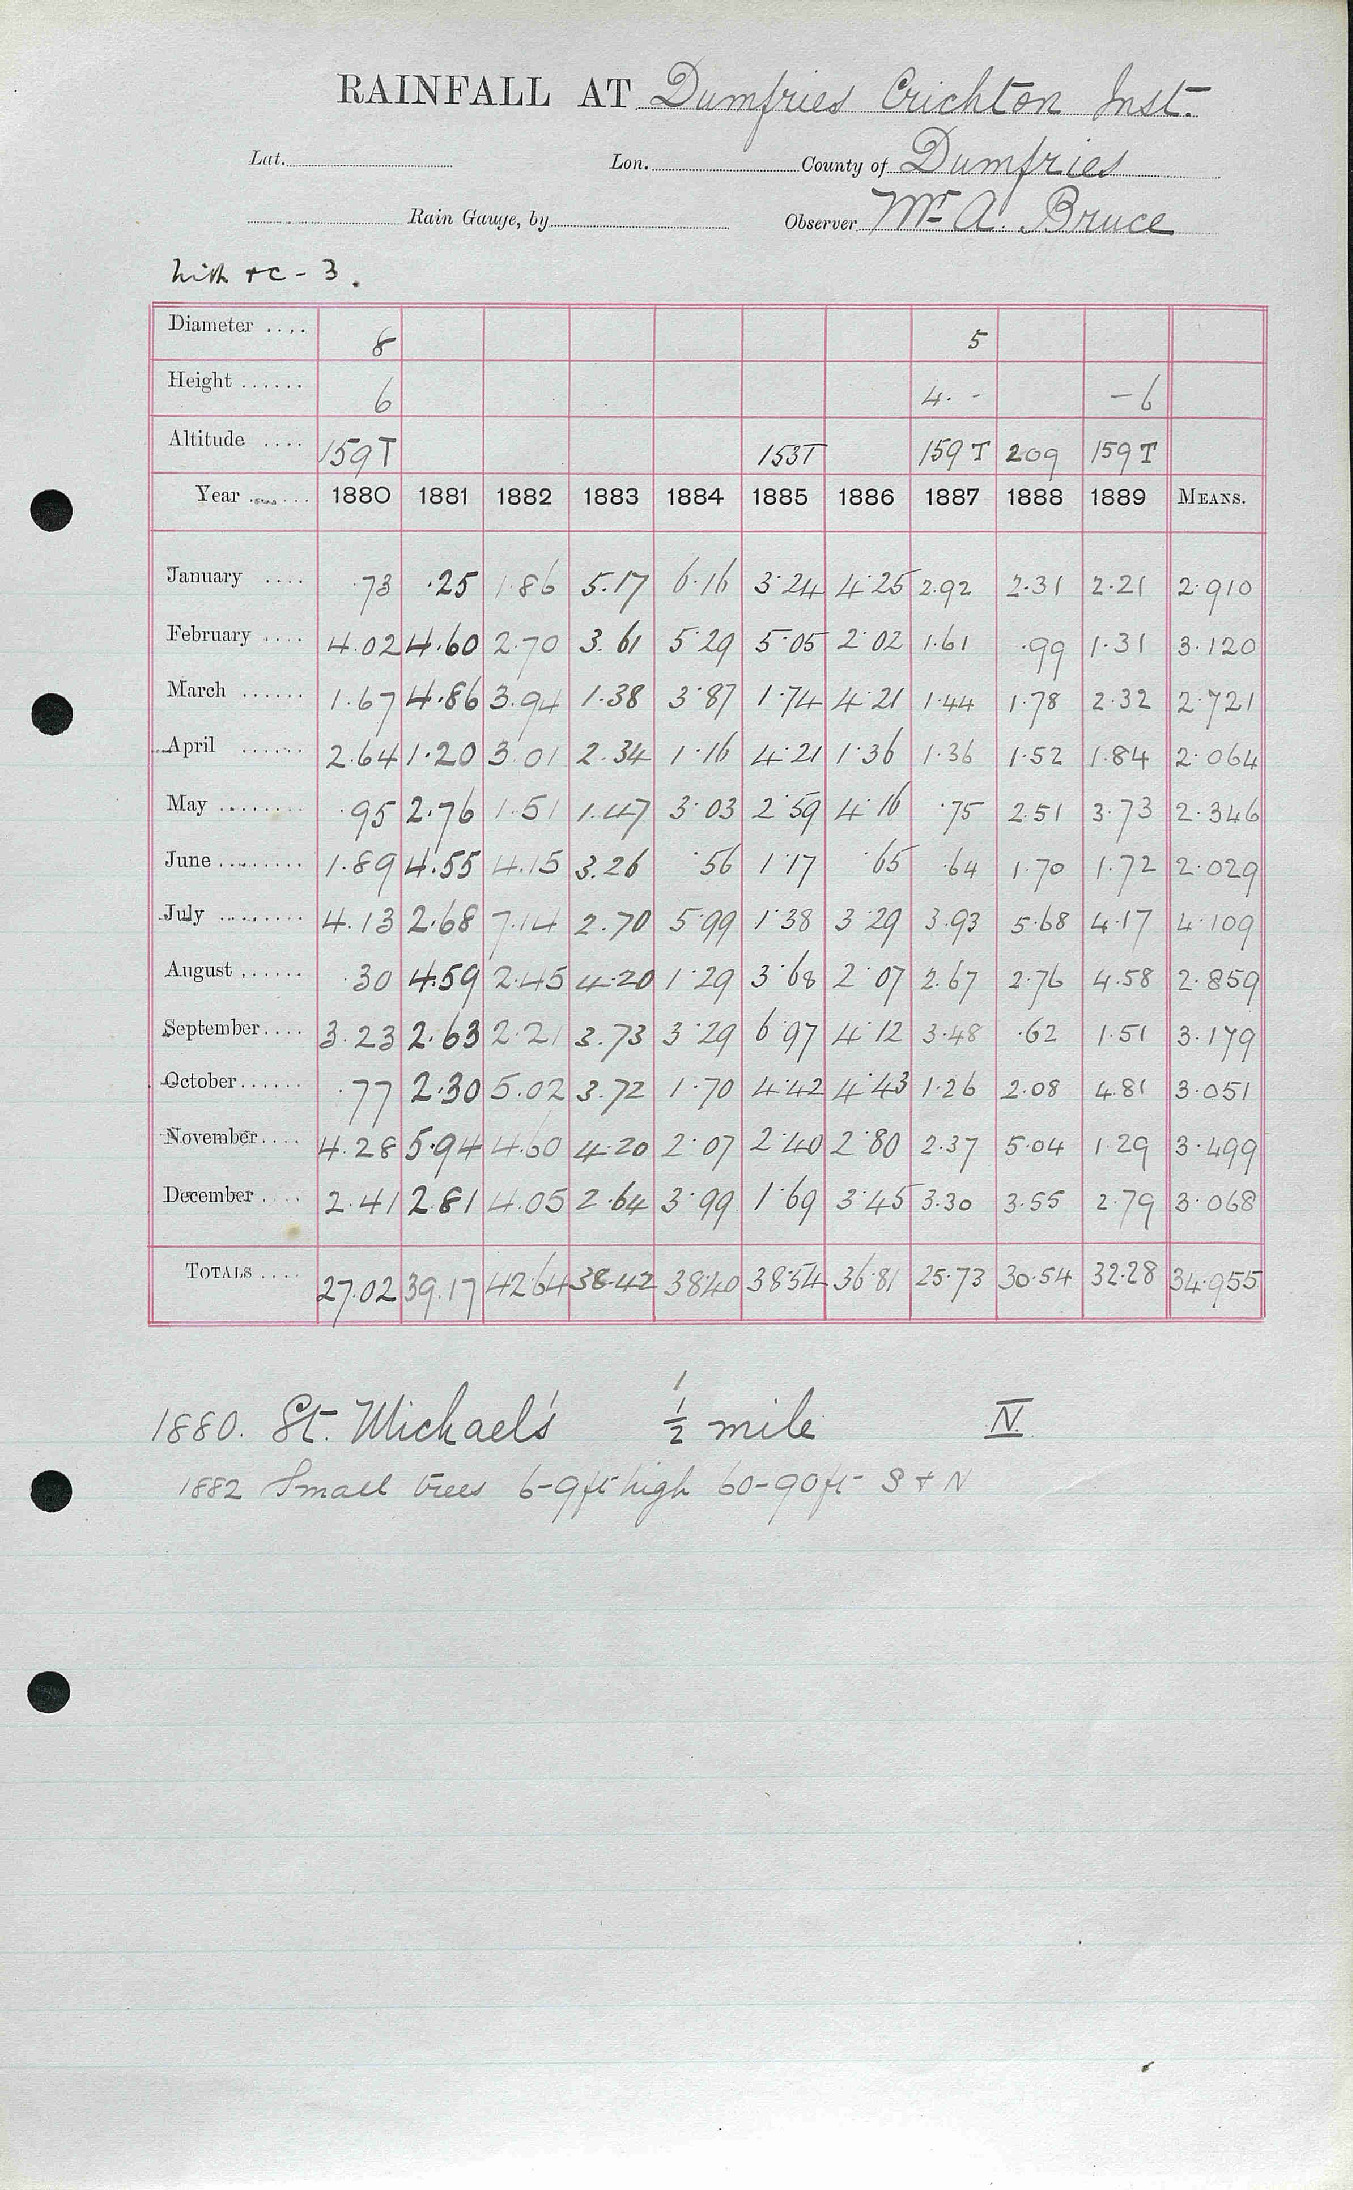 RAINFALL AT Dumfries Crichton Inst.
Lat. Lon. County of Dumfries
Rain Gauge, by Observer Mr. A. Bruce
- 3.
Diameter .... 8 5
Height ...... 6 4. - - 6
Altitude .... 159T 153T 159T 209 159T
Year 1880 1881 1882 1883 1884 1885 1886 1887 1888 1889 MEANS.
January .... .73 .25 1.86 5.17 6.16 3.24 4.25 2.92 2.31 2.21 2.910
February .... 4.02 4.60 2.70 3.61 5.29 5.05 2.02 1.61 .99 1.31 3.120
March ...... 1.67 4.86 3.94 1.38 3.87 1.74 4.21 1.44 1.78 2.32 2.721
April ...... 2.64 1.20 3.01 2.34 1.16 4.21 1.36 1.36 1.52 1.84 2.064
May ........ .95 2.76 1.51 1.47 3.03 2.59 4.16 .75 2.51 3.73 2.346
June ........ 1.89 4.55 4.15 3.26 .56 1.17 .65 .64 1.70 1.72 2.029
July ........ 4.13 2.68 7.14 2.70 5.99 1.38 3.29 3.93 5.68 4.17 4.109
August ...... .30 4.59 2.45 4.20 1.29 3.68 2.07 2.67 2.76 4.58 2.859
September.... 3.23 2.63 2.21 3.73 3.29 6.97 4.12 3.48 .62 1.51 3.179
October...... .77 2.30 5.02 3.72 1.70 4.42 4.43 1.26 2.08 4.81 3.051
November.... 4.28 5.94 4.60 4.20 2.07 2.40 2.80 2.37 5.04 1.29 3.499
December.... 2.41 2.81 4.05 2.64 3.99 1.69 3.45 3.30 3.55 2.79 3.068
TOTALS .... 27.02 39.17 42.64 38.42 38.40 38.54 36.81 25.73 30.54 32.28 34.955
1880. St. Michael's ½ mile N.
1882 Small trees 6-9ft high 60-90ft S + N